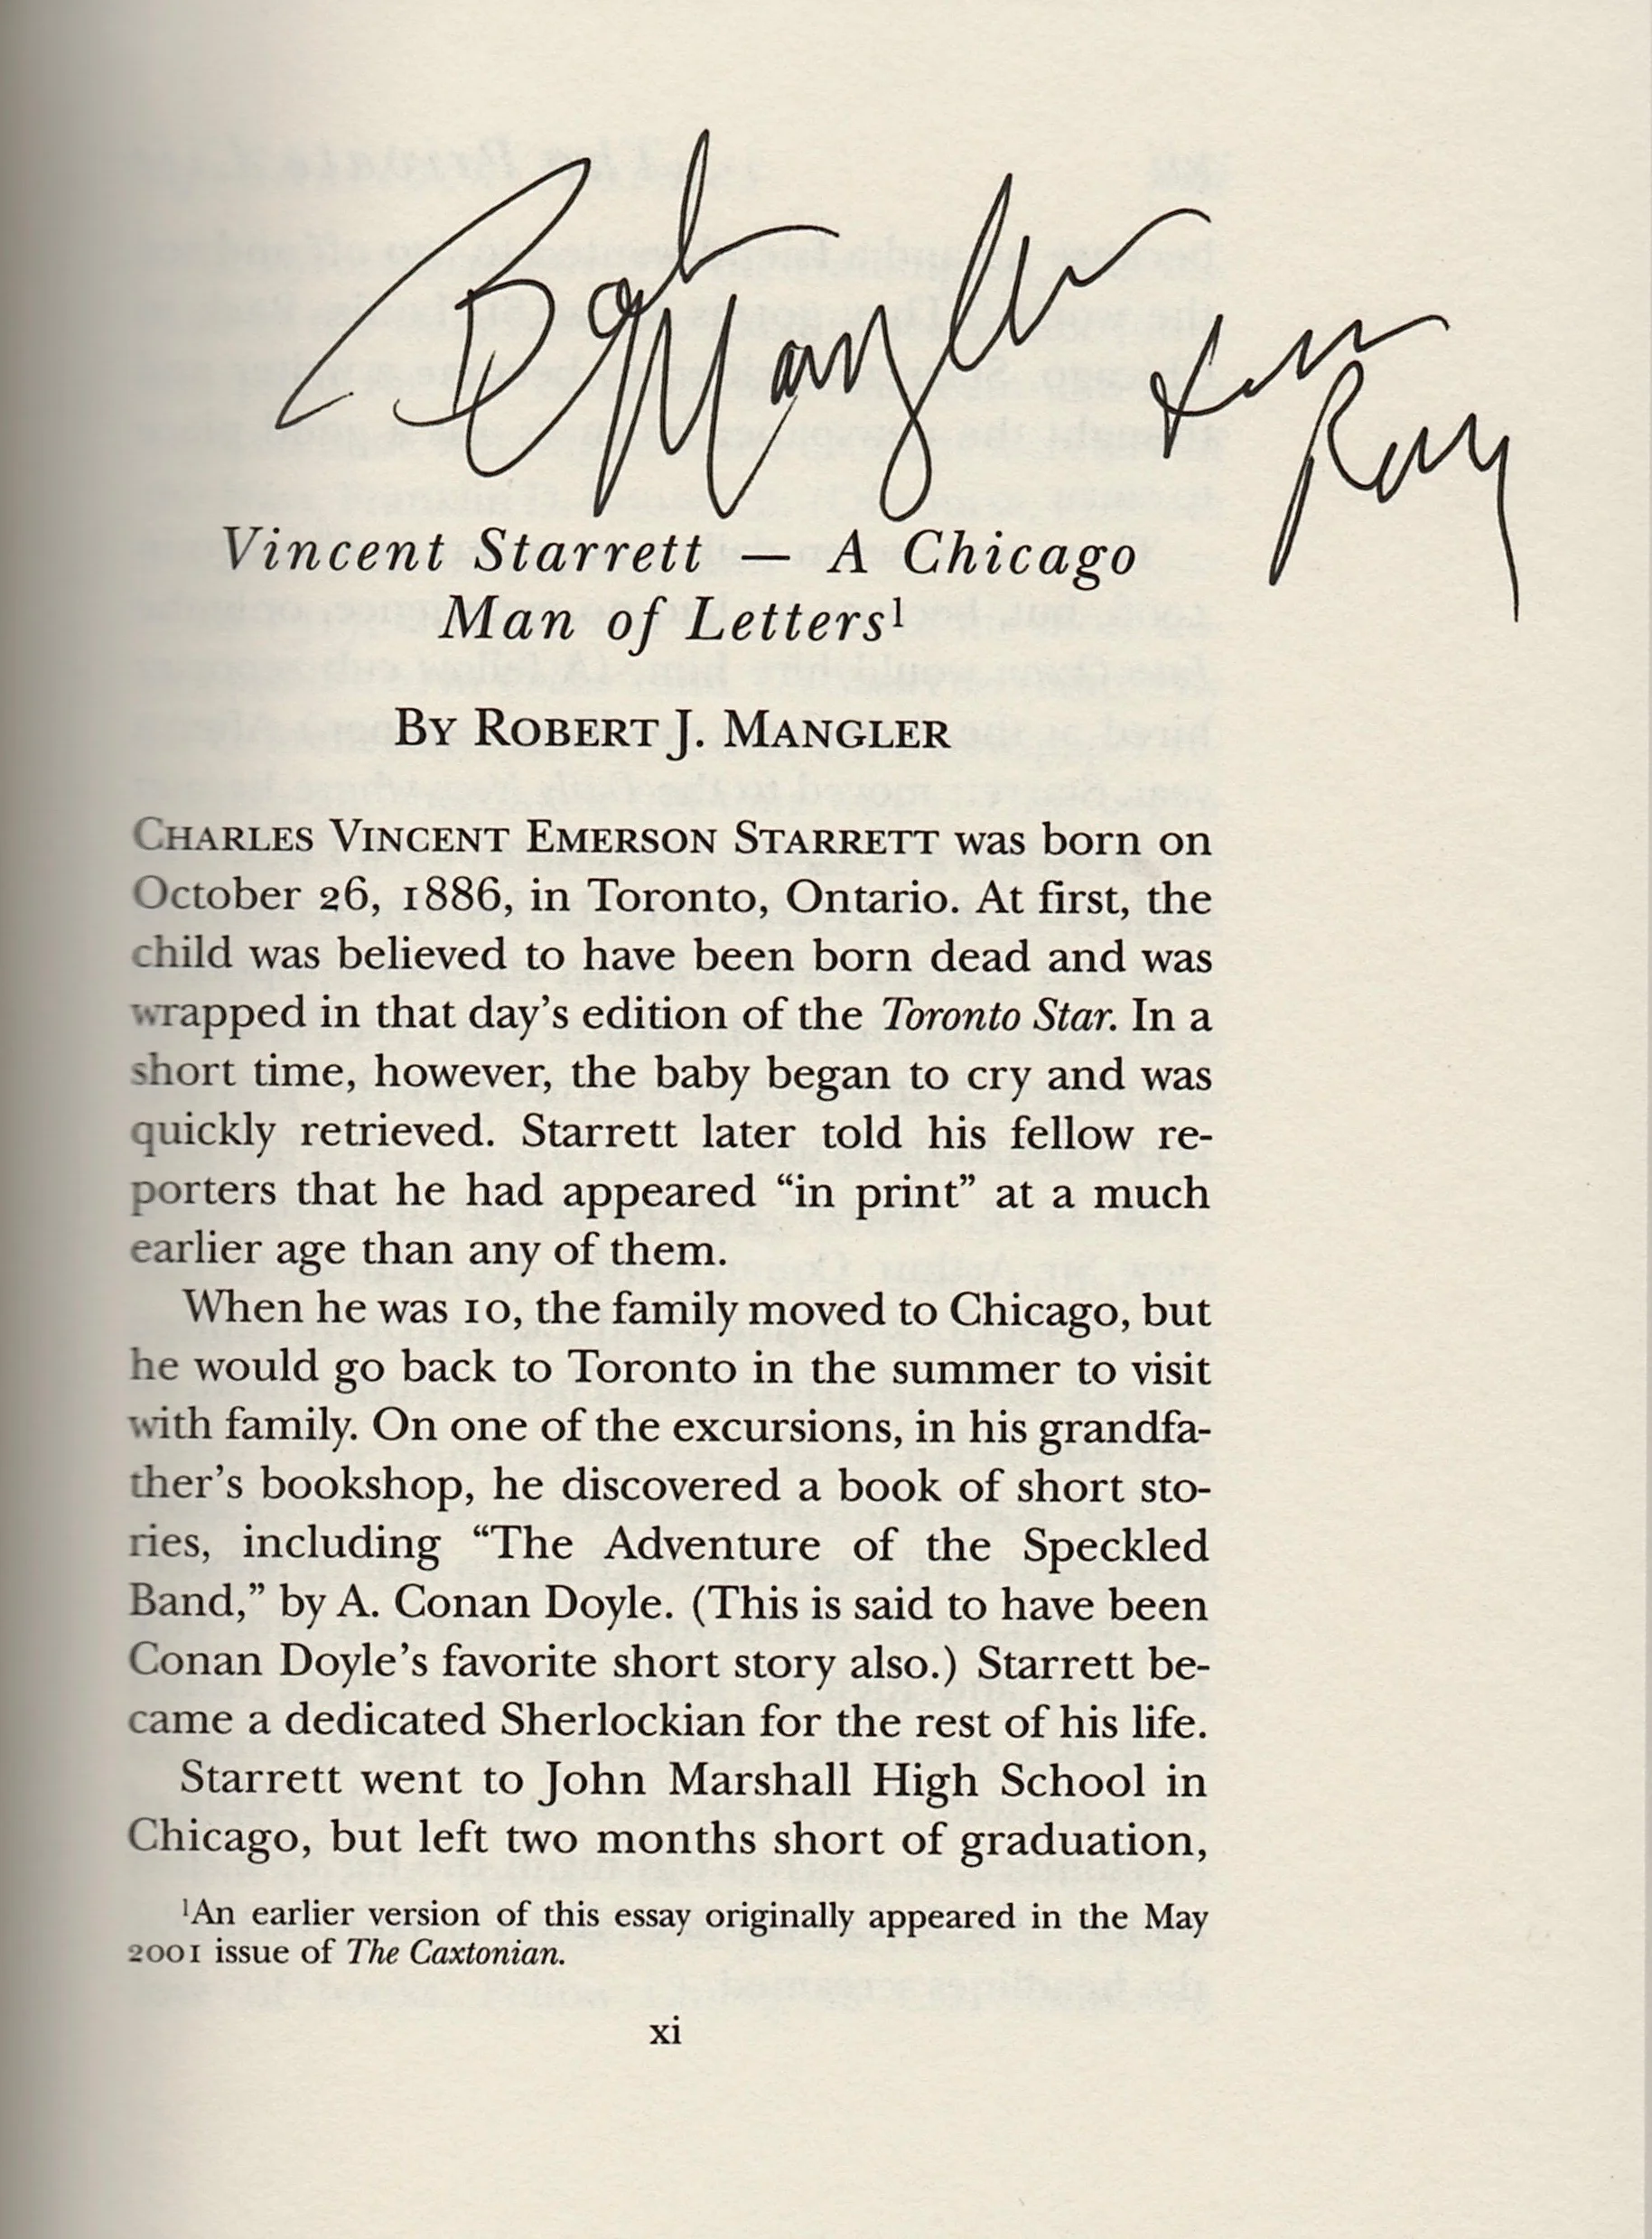 Bob Mangler
for
Ray
Vincent Starrett — A Chicago
Man of Letters¹
BY ROBERT J. MANGLER
CHARLES VINCENT EMERSON STARRETT was born on
October 26, 1886, in Toronto, Ontario. At first, the
child was believed to have been born dead and was
wrapped in that day’s edition of the Toronto Star. In a
short time, however, the baby began to cry and was
quickly retrieved. Starrett later told his fellow re-
porters that he had appeared “in print” at a much
earlier age than any of them.
When he was 10, the family moved to Chicago, but
he would go back to Toronto in the summer to visit
with family. On one of the excursions, in his grandfa-
ther’s bookshop, he discovered a book of short sto-
ries, including “The Adventure of the Speckled
Band,” by A. Conan Doyle. (This is said to have been
Conan Doyle’s favorite short story also.) Starrett be-
came a dedicated Sherlockian for the rest of his life.
Starrett went to John Marshall High School in
Chicago, but left two months short of graduation,
¹An earlier version of this essay originally appeared in the May
2001 issue of The Caxtonian.
xi